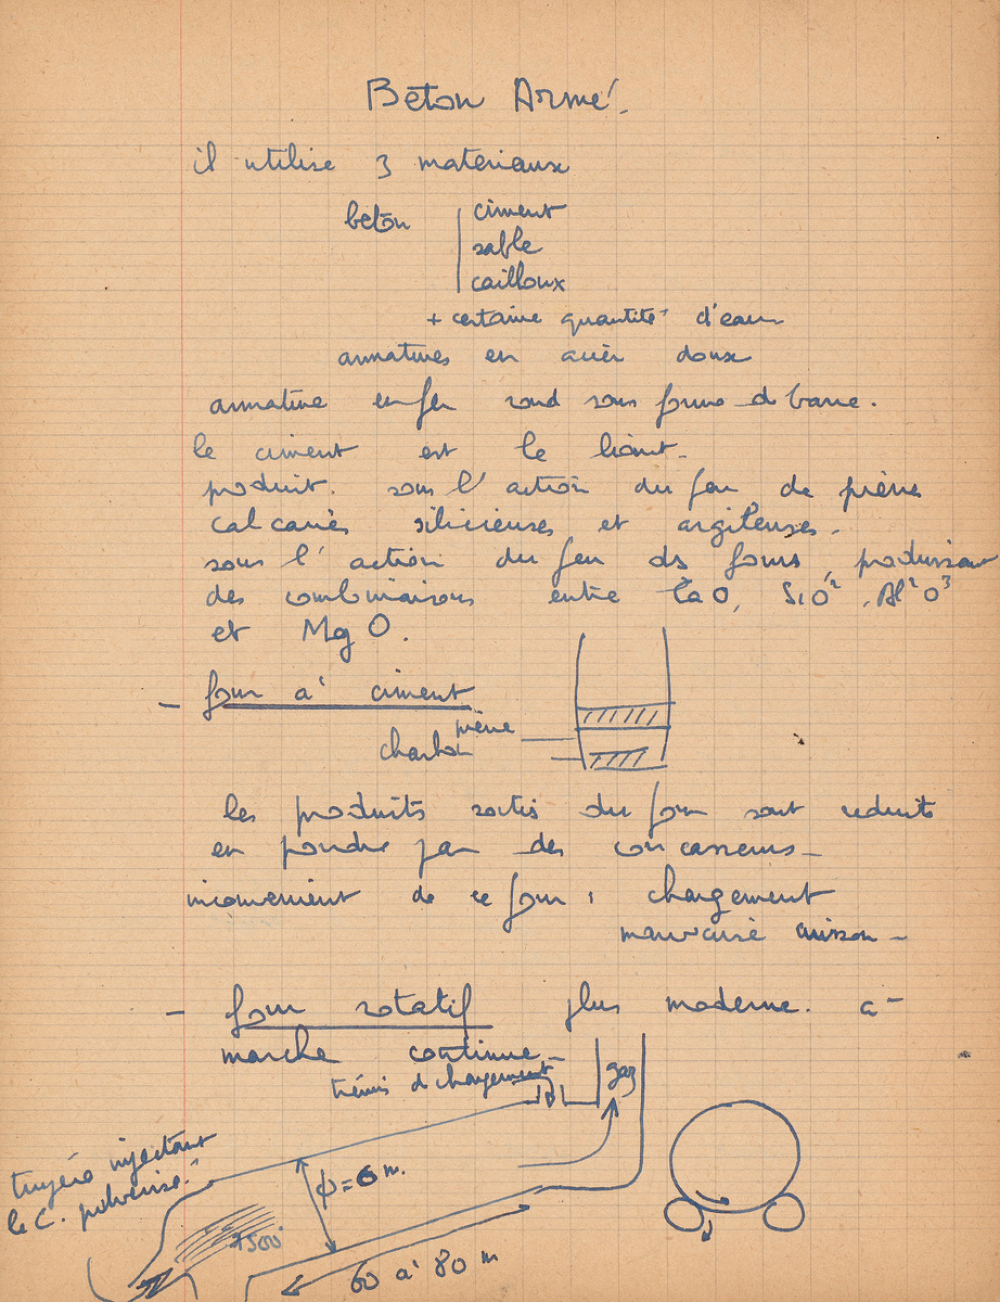 Béton Armé.
il utilise 3 materiaux
béton
ciment
sable
cailloux
+ certaine quantité d'eau
armatures en acier doux
armature en fer rond sous forme de barre.
le ciment est le liant.
produit sous l'action du feu de pierre
calcaires siliceuses et argileuses.
sous l'action du feu ds fours, produisant
des combinaisons entre CaO, SiO², Al²O³
et MgO.
- four à ciment
pierre
charbon
les produits sortis du four sont reduits
en poudre par des concasseurs -
inconvenient de ce four : chargement
mauvaise cuisson -
- four rotatif plus moderne. à
marche continue -
trémie de chargement
gaz
tuyère injectant
le C. pulvérisé
ϕ = 6 m.
1500°
60 à 80 m